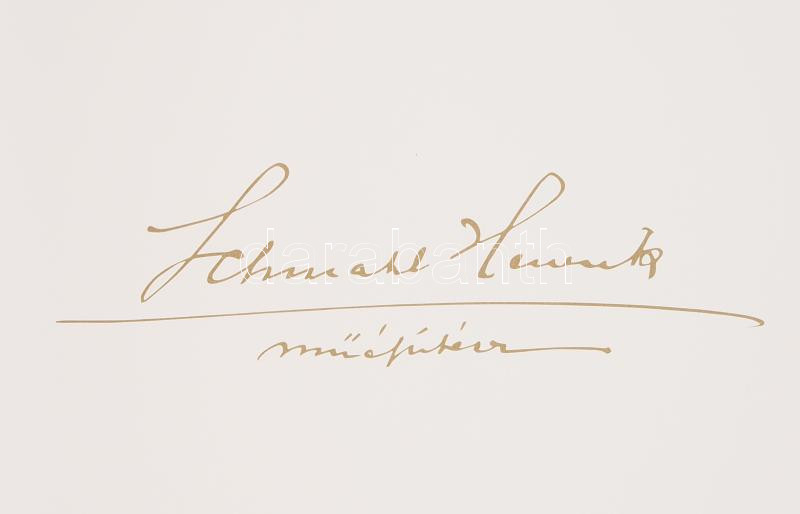 Schmahl Henrik
műépítész
darabanth